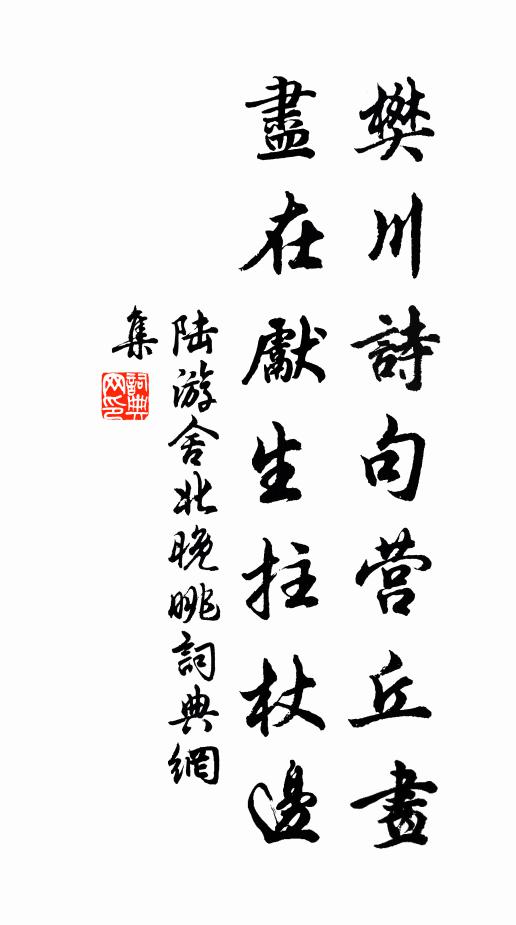 樊川詩句营丘畫
盡在獻生拄杖邊
陆游舍北晚眺詞典網
集
詞典
网印